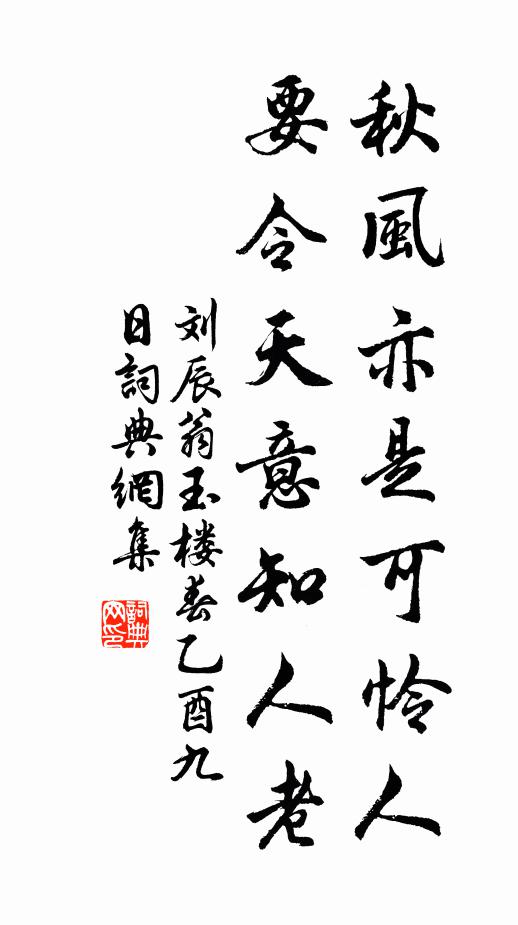 秋風亦是可怜人
要令天意知人老
刘辰翁玉楼春乙酉九
日詞典網集
詞典網印